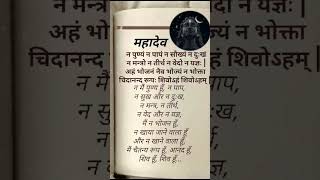 महादेव
न पुण्यं न पापं न सौख्यं न दुःख
न मन्त्रो न तीर्थ न वेदो न यज्ञः |
अहं भोजनं नैव भोज्यं न भोक्ता
चिदानन्द रूपः शिवोऽहं शिवोऽहम्
न मैं पुण्य हूँ, न पाप,
न सुख और न दुःख,
न मन्त्र, न तीर्थ,
न वेद और न यज्ञ,
मैं न भोजन हूँ,
न खाया जाने वाला हूँ
और न खाने वाला हूँ,
मैं चैतन्य रूप हूँ, आनंद हूँ,
शिव हूँ, शिव हूँ...